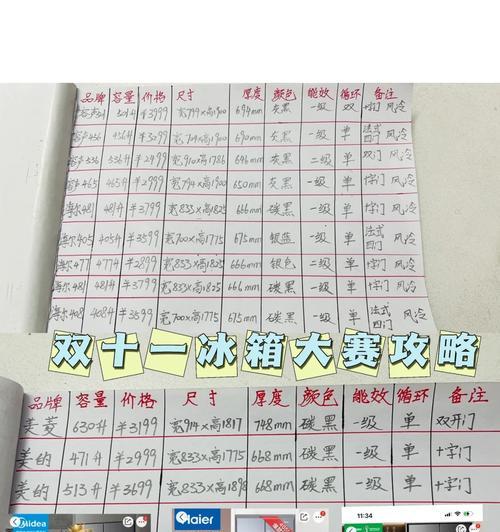 品牌 容量 价格 尺寸 厚度 颜色 能效 循环 备注
501升 ¥3999 宽794×高1900 694mm 灰黑 一级 双 十字门 风冷
456 456升 ¥3299 宽704×高1900 690mm 灰黑 一级 单 法式四门 风冷
536 536升 ¥2499 宽910×高1786 646mm 灰黑 二级 单 双门 风冷
465 465升 ¥2999 宽794×高1900 650mm 灰黑 一级 单 十字门 风冷
海尔481 481升 ¥3799 宽833×高1825 666mm 碳黑 一级 单 十字门 风冷
海尔405 405升 ¥3599 宽700×高1775 675mm 银蓝 一级 单 法式四门 风冷
海尔477 477升 ¥2899 宽833×高1825 666mm 银色 二级 单 十字门 风冷
海尔481 481升 ¥3799 宽833×高1825 668mm 碳黑 一级 单 十字门 风冷
海尔408 408升 ¥3599 宽700×高1775 675mm 碳黑 一级 单 法式四门 风冷
双十一冰箱大赛攻略
品牌 容量 价格 尺寸 厚度 颜色 能效 循环 备注
美菱 630升 ¥3199 宽914×高1817 748mm 碳黑 一级 单 双开门
美的 471升 ¥2999 宽833×高1775 668mm 碳黑 一级 单 十字门
美的 513升 ¥3699 宽833×高1898 668mm 碳黑 一级 单 十字门
Midea Haier 11:34